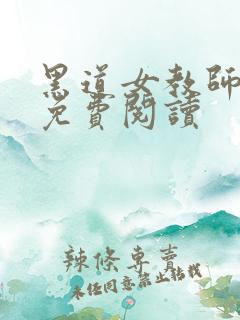 黑道女教師
免費閱讀
辣條專賣
未經同意禁止轉載